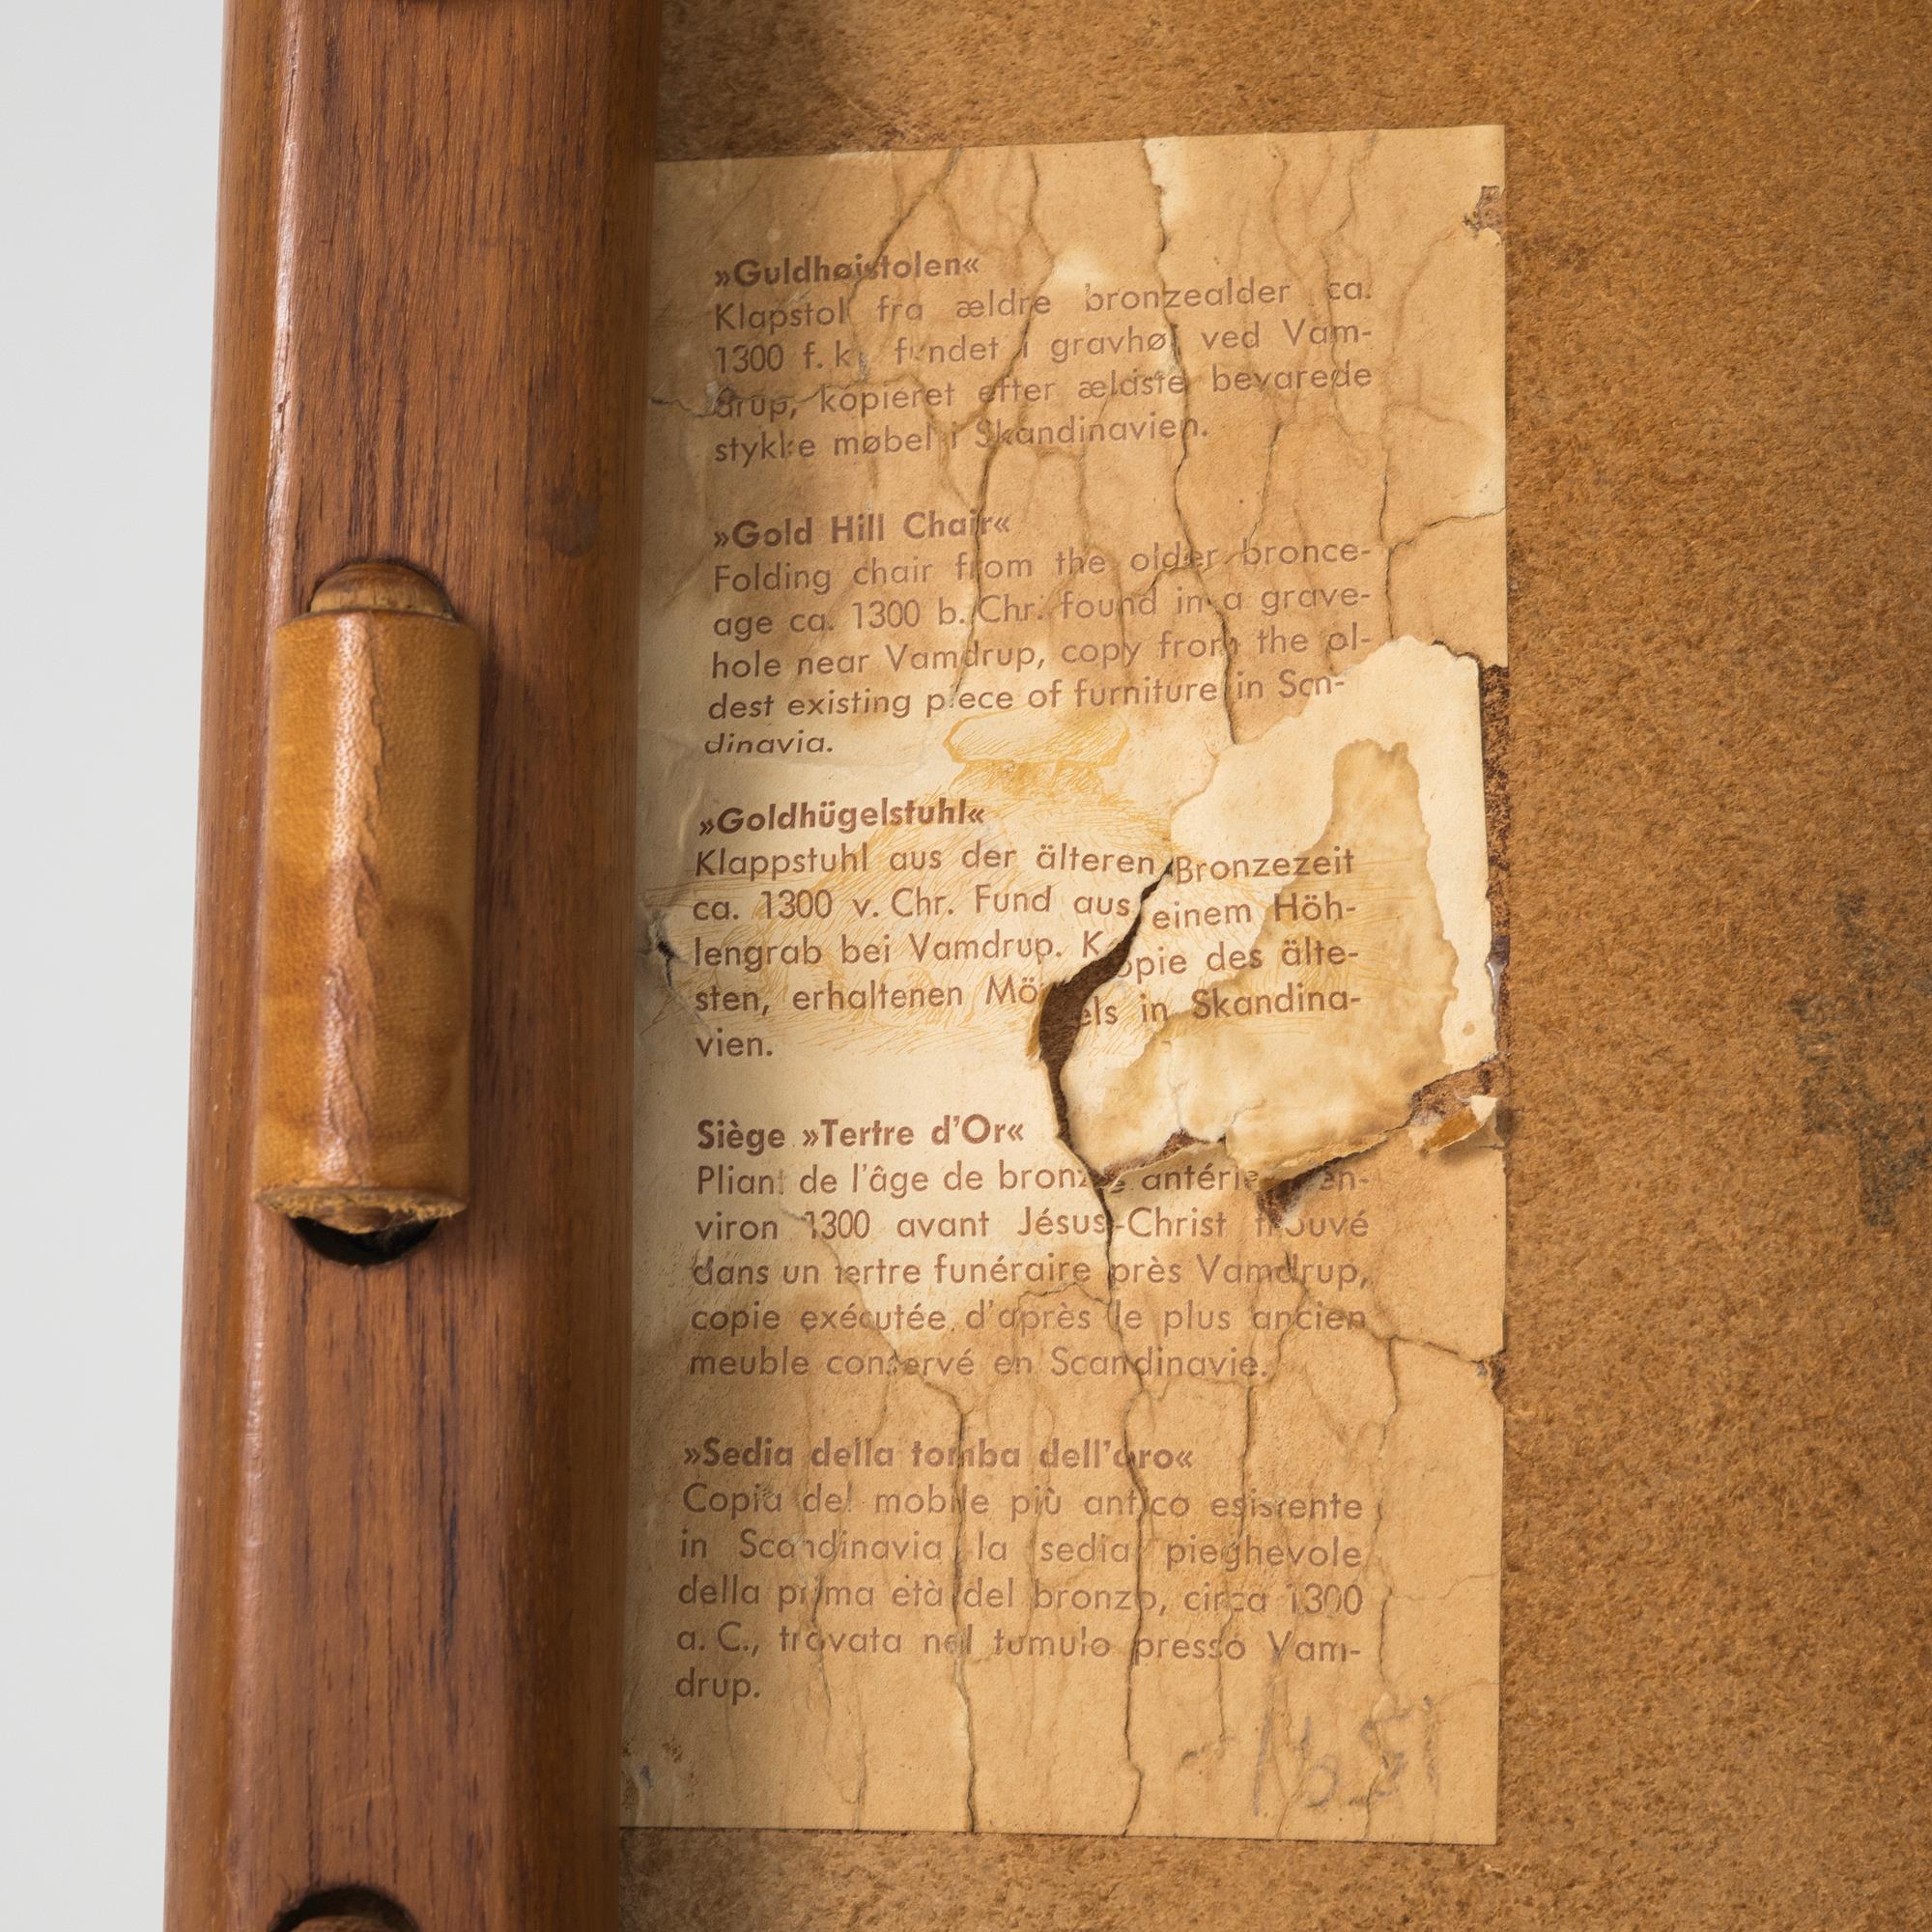 »Guldhøistolen«
Klapstol fra ældre bronzealder ca.
1300 f. kr. fundet i gravhøj ved Vam-
drup, kopieret efter ældste bevarede
stykke møbel i Skandinavien.
»Gold Hill Chair«
Folding chair from the older bronce-
age ca. 1300 b. Chr. found in a grave-
hole near Vamdrup, copy from the ol-
dest existing piece of furniture in Scn-
dinavia.
»Goldhügelstuhl«
Klappstuhl aus der älteren Bronzezeit
ca. 1300 v. Chr. Fund aus einem Höh-
lengrab bei Vamdrup. Kopie des älte-
sten, erhaltenen Möbels in Skandina-
vien.
Siège »Tertre d'Or«
Pliant de l'âge de bronze antérieur en-
viron 1300 avant Jésus-Christ trouvé
dans un tertre funéraire près Vamdrup,
copie exécutée d'après le plus ancien
meuble conservé en Scandinavie.
»Sedia della tomba dell'oro«
Copia del mobile più antico esistente
in Scandinavia la sedia pieghevole
della prima età del bronzo, circa 1300
a. C., trovata nel tumulo presso Vam-
drup.